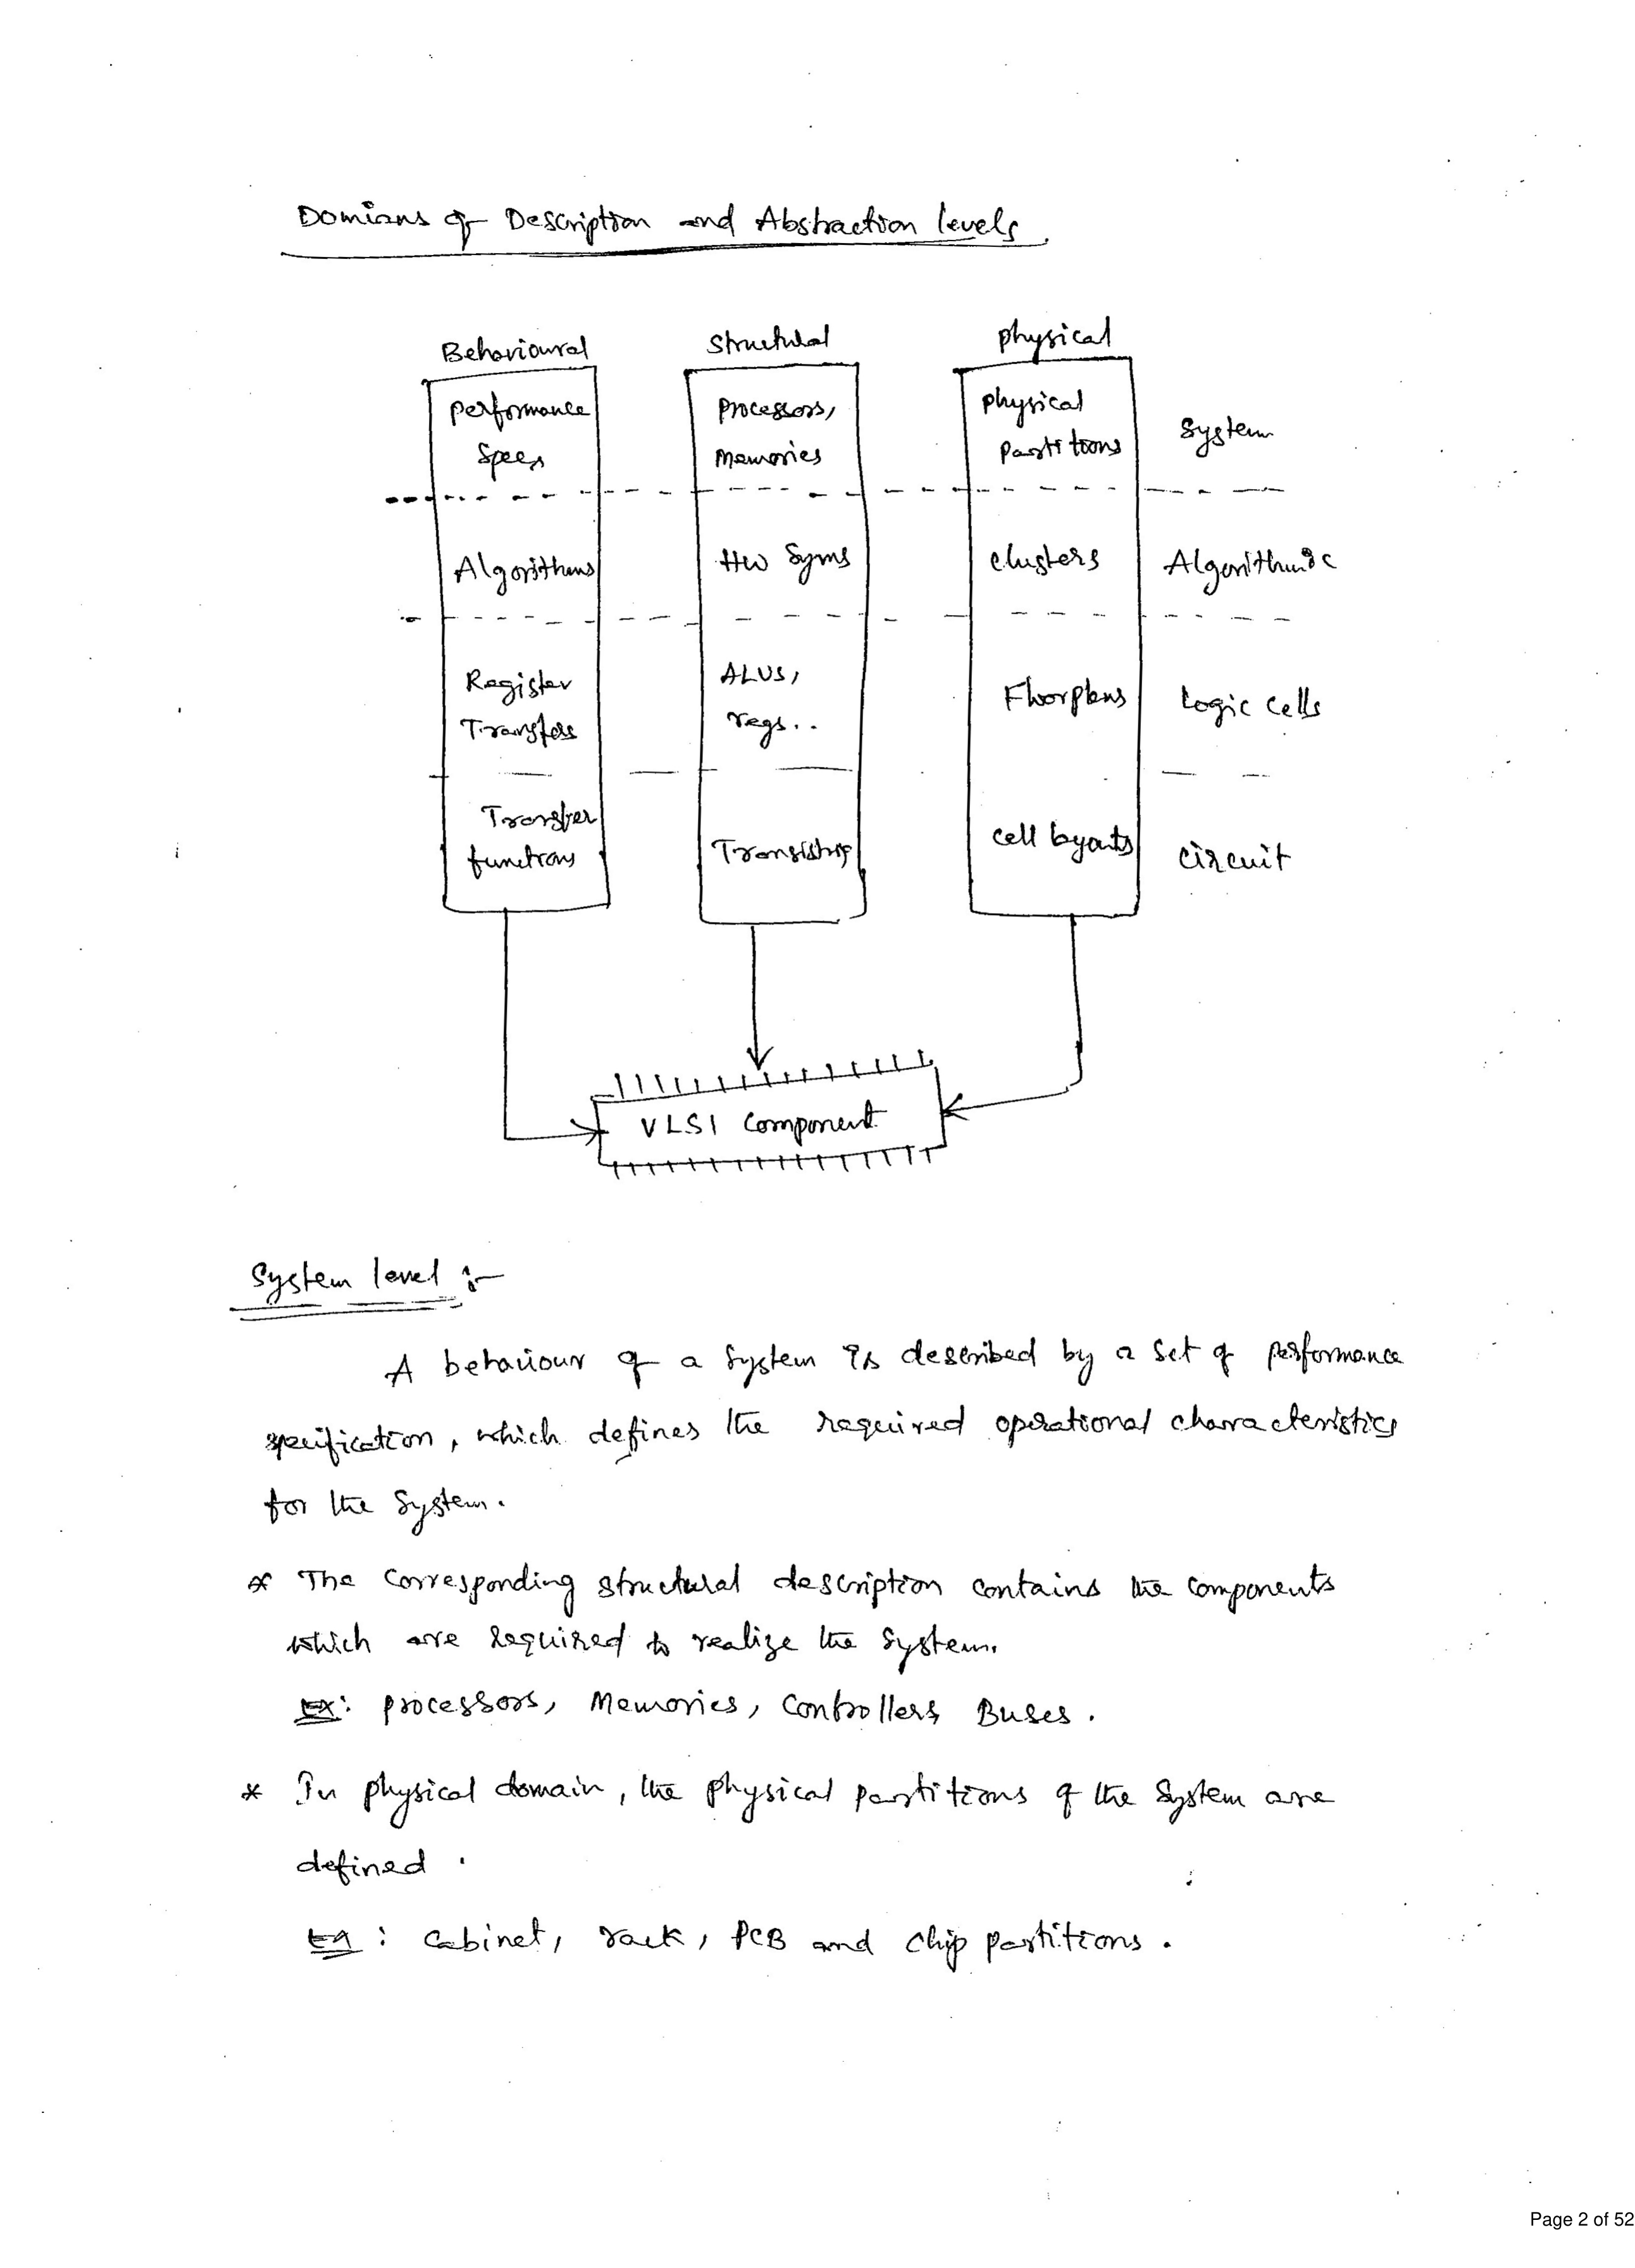 Domians of Description and Abstraction levels.
Behavioural Structural physical
performance Processors, physical
Specs Memories Partitions System
Algorithms HW Syms clusters Algorithmic
Register ALUs,
Transfers regs.. Floorplans Logic Cells
Transfer
functions Transistors cell layouts circuit
VLSI Component
System level :-
A behaviour of a System is described by a Set of performance
specification, which defines the required operational characteristics
for the System.
* The Corresponding structural description contains the components
which are required to realize the System.
Ex: processors, Memories, Controllers, Buses.
* In physical domain, the physical partitions of the System are
defined.
Ex: Cabinet, rack, PCB and chip partitions.
Page 2 of 52